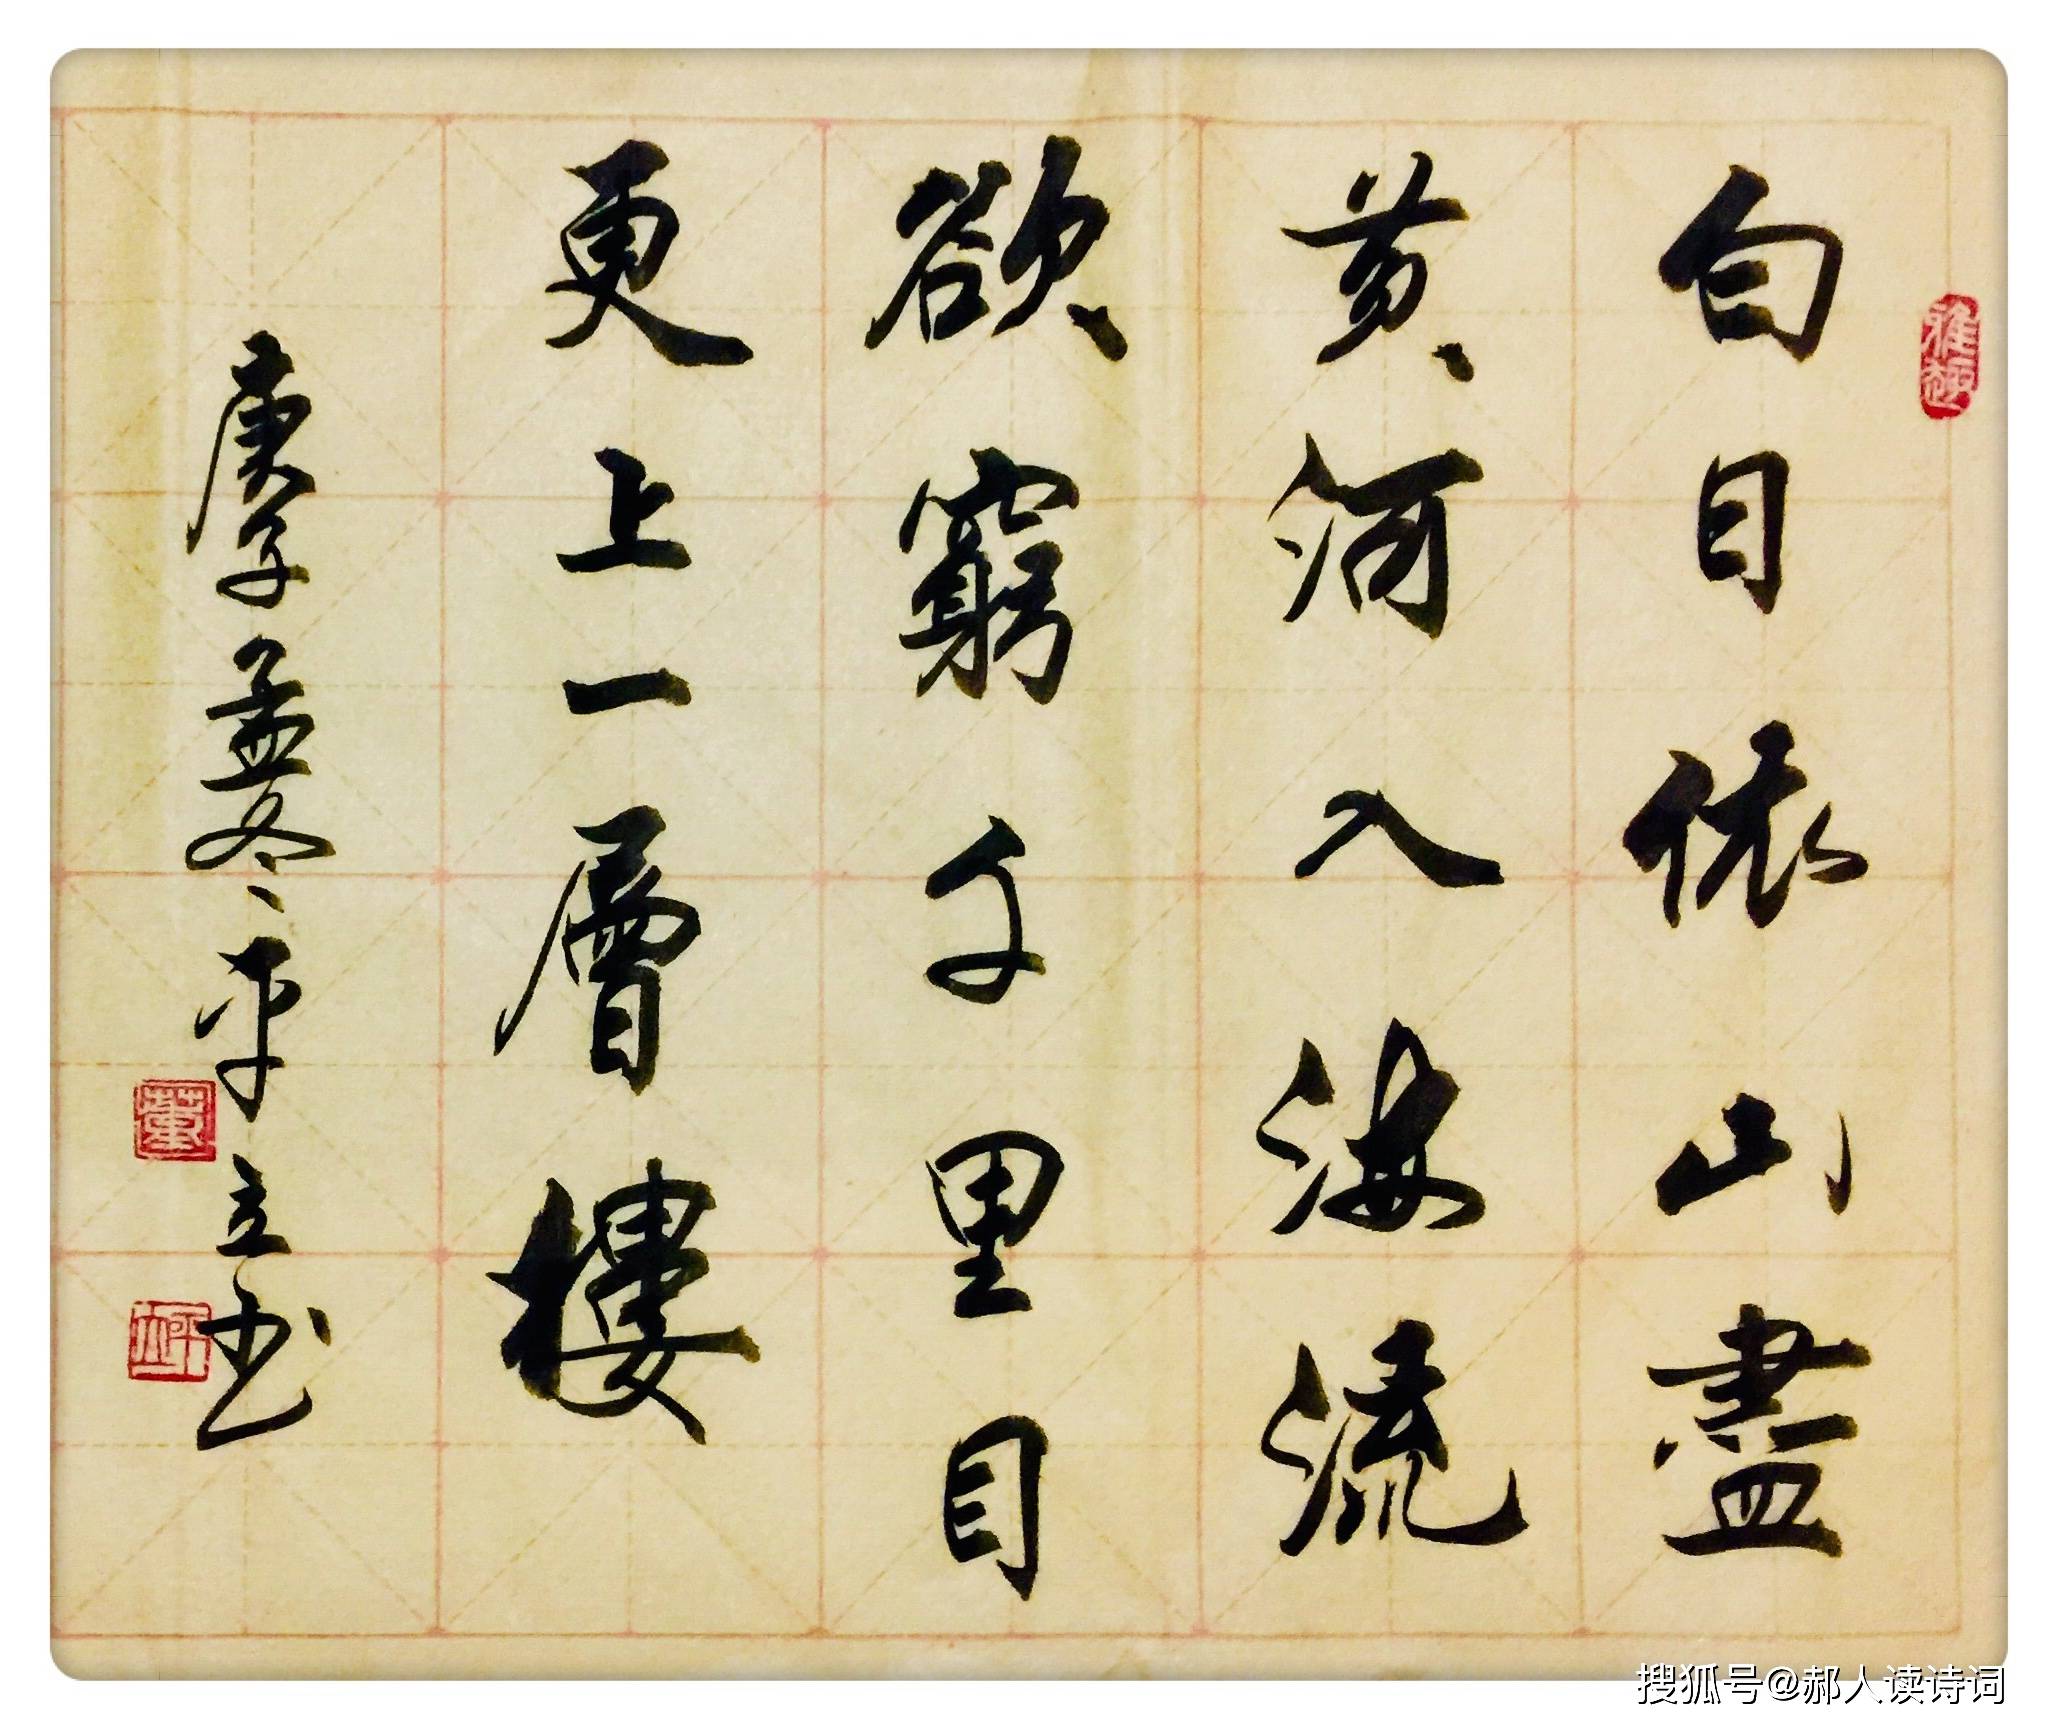 白日依山盡
黄河入海流
欲窮千里目
更上一層樓
庚子孟冬平立书
雅趣
董
搜狐号@郝人读诗词